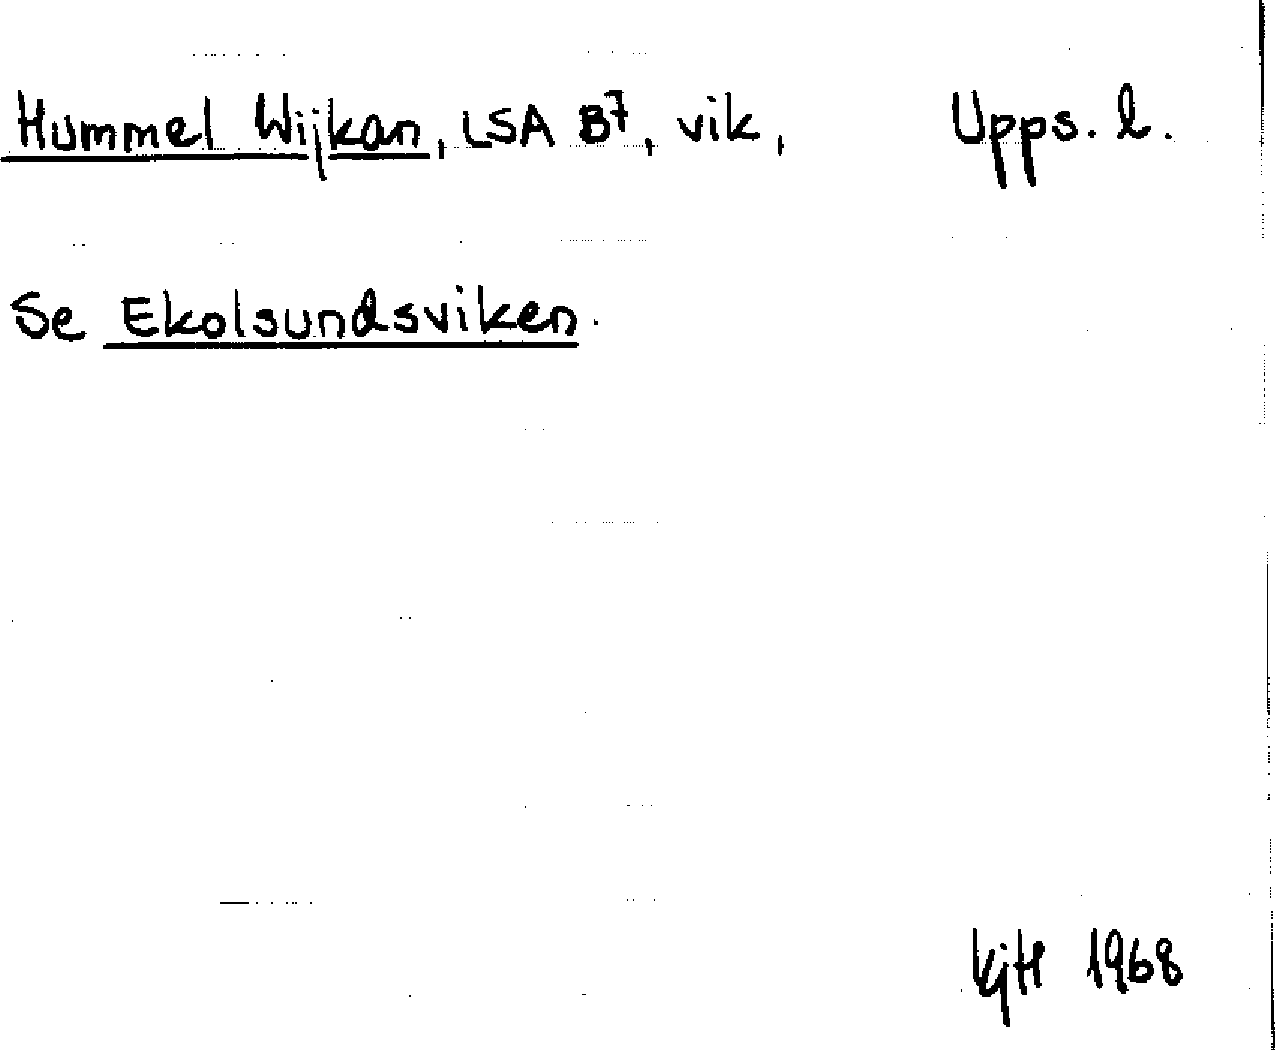 Hummel Wijkan, LSA B7, vik, Upps. l.
Se Ekolsundsviken.
KjH 1968